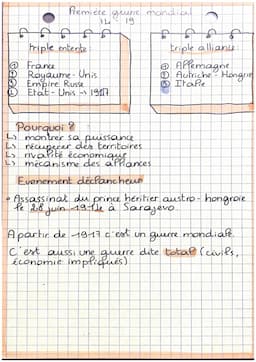 Première geurre mondial
14 19
triple entente
triple alliance
① France
② Royaume-Unis
③ Empire Russe
④ Etat-Unis → 1917
① Allemagne
② Autriche-Hongrie
③ Italie
Pourquoi ?
↳ montrer sa puissance
↳ récuperer des territoires
↳ rivalité économique
↳ mécanisme des alliances
Evenement déclancheur
• Assassinat du prince héritier austro-hongroie
le 28 juin 1914 à Sarajevo.
A partir de 1917 c'est un guerre mondiale.
C'est aussi une guerre dite total (civils,
économie impliqués)